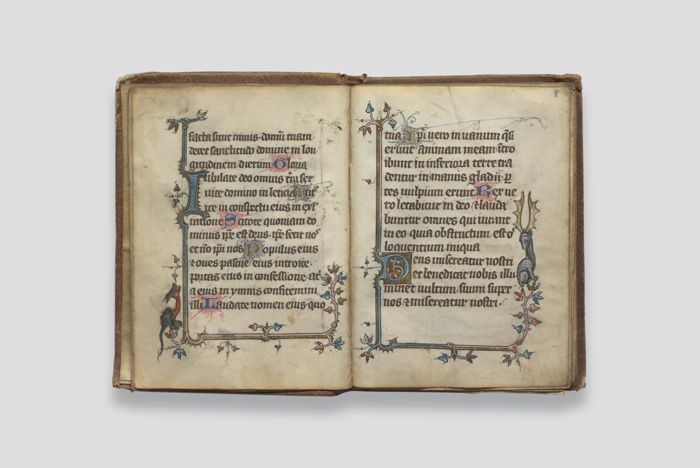 facta sunt nimis. domũ tuam
decet sanctitudo domine in lon
gitudinem dierum. Gloria
Iubilate deo omnis tr̃a ser
uite domino in leticia. Int̃
te in conspectu eius in exl̃
tatione. Scitote quoniam do
minus ip̃e est deus. ip̃e fecit nos
et nõ ip̃i nos. Populus eius
& oues pascue eius introite.
portas eius in confessione at̃
a eius in ymnis confitemini
illi. Laudate nomen eius. quo
tua. Ip̃i uero in uanum q̃si
erunt animam meam ĩtro
ibunt in inferiora terre tra
dentur in manus gladii. p̃
tes uulpium erunt. Rex ue
ro letabitur in deo & lauda
buntur omnes qui iurant
in eo quia obstructum est o
loquentium iniqua.
Deus misereatur nostri
et benedicat nobis illu
minet uultum suum super
nos & misereatur nostri.